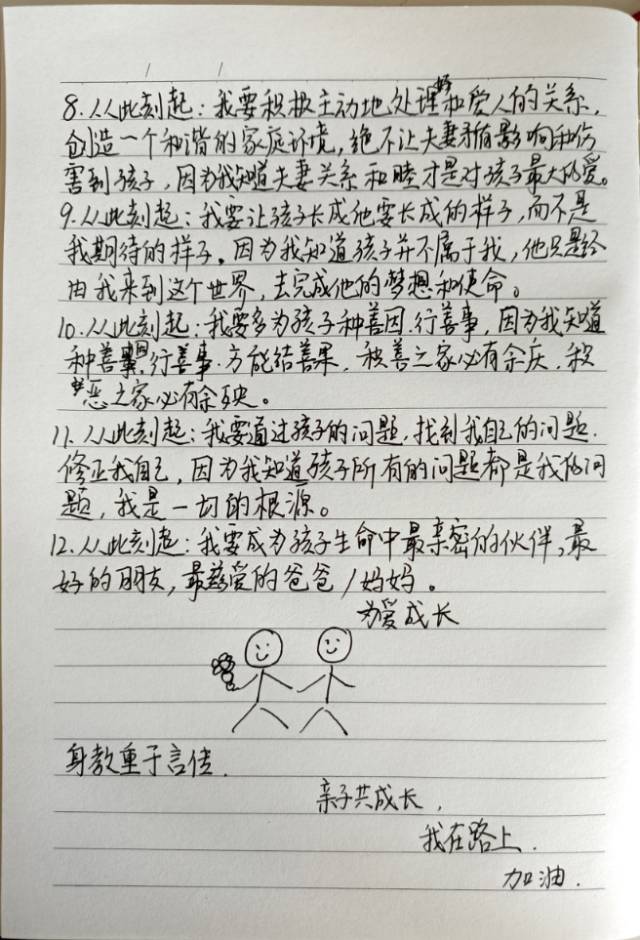 8.从此刻起:我要积极主动地处理好和爱人的关系,
创造一个和谐的家庭环境,绝不让夫妻矛盾影响和伤
害到孩子,因为我知道夫妻关系和睦才是对孩子最大的爱。
9.从此刻起:我要让孩子长成他要长成的样子,而不是
我期待的样子。因为我知道孩子并不属于我,他只是经
由我来到这个世界,去完成他的梦想和使命。
10.从此刻起:我要多为孩子种善因.行善事,因为我知道
种善因.行善事.方能结善果,积善之家必有余庆,积
恶之家必有余殃。
11.从此刻起:我要通过孩子的问题,找到我自己的问题.
修正我自己,因为我知道孩子所有的问题都是我的问
题,我是一切的根源。
12.从此刻起:我要成为孩子生命中最亲密的伙伴,最
好的朋友,最慈爱的爸爸/妈妈。
为爱成长
身教重于言传.
亲子共成长,
我在路上.
加油.